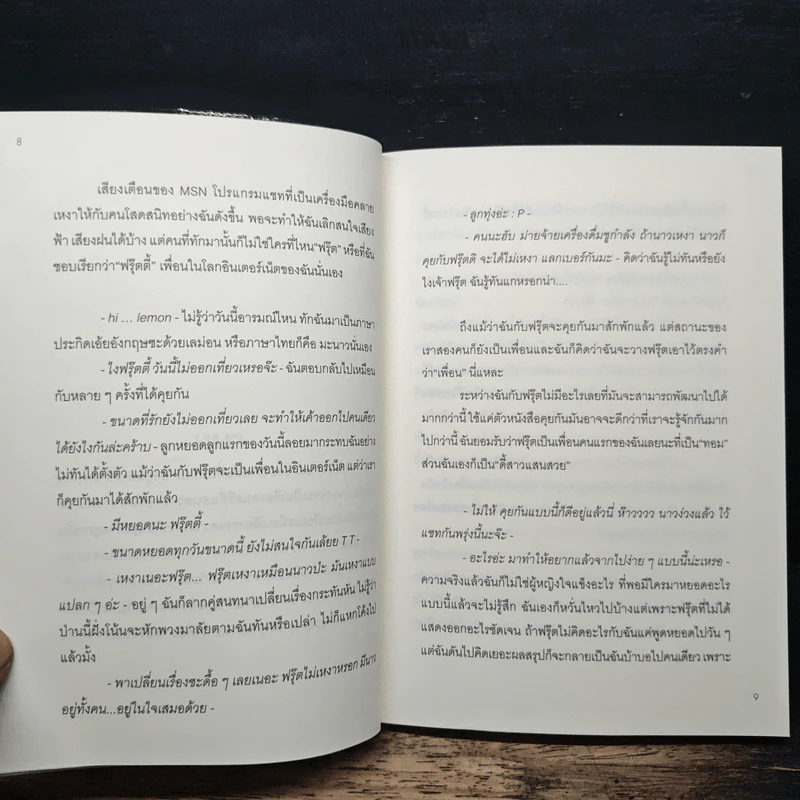 8
เสียงเตือนของ MSN โปรแกรมแชทที่เป็นเครื่องมือคลาย
เหงาให้กับคนโสดสนิทอย่างฉันดังขึ้น พอจะทำให้ฉันเลิกสนใจเสียง
ฟ้า เสียงฝนได้บ้าง แต่คนที่ทักมานั้นก็ไม่ใช่ใครที่ไหน“ฟรุ๊ต” หรือที่ฉัน
ชอบเรียกว่า“ฟรุ๊ตตี้” เพื่อนในโลกอินเตอร์เน็ตของฉันนั่นเอง
- hi ... lemon - ไม่รู้ว่าวันนี้อารมณ์ไหน ทักฉันมาเป็นภาษา
ประกิดเอ้ยอังกฤษซะด้วยเลม่อน หรือภาษาไทยก็คือ มะนาวนั่นเอง
- ไงฟรุ๊ตตี้ วันนี้ไม่ออกเที่ยวเหรอจ๊ะ - ฉันตอบกลับไปเหมือน
กับหลาย ๆ ครั้งที่ได้คุยกัน
- ขนาดที่รักยังไม่ออกเที่ยวเลย จะทำให้เค้าออกไปคนเดียว
ได้ยังไงกันล่ะคร้าบ - ลูกหยอดลูกแรกของวันนี้ลอยมากระทบฉันอย่าง
ไม่ทันได้ตั้งตัว แม้ว่าฉันกับฟรุ๊ตจะเป็นเพื่อนในอินเตอร์เน็ต แต่ว่าเรา
ก็คุยกันมาได้สักพักแล้ว
- มีหยอดนะ ฟรุ๊ตตี้ -
- ขนาดหยอดทุกวันขนาดนี้ ยังไม่สนใจกันเล้ยย T T -
- เหงาเนอะฟรุ๊ต... ฟรุ๊ตเหงาเหมือนนาวปะ มันเหงาแบบ
แปลก ๆ อ่ะ - อยู่ ๆ ฉันก็ลากคู่สนทนาเปลี่ยนเรื่องกระทันหัน ไม่รู้ว่า
ป่านนี้ฝั่งโน้นจะหักพวงมาลัยตามฉันทันหรือเปล่า ไม่ก็แหกโค้งไป
แล้วมั้ง
- พาเปลี่ยนเรื่องซะดื้อ ๆ เลยเนอะ ฟรุ๊ตไม่เหงาหรอก มีนาว
อยู่ทั้งคน...อยู่ในใจเสมอด้วย -
- ลูกทุ่งอ่ะ : P -
- คนนะฮับ ม่ายจ้ายเครื่องดื่มชูกำลัง ถ้านาวเหงา นาวก็
คุยกับฟรุ๊ตติ จะได้ไม่เหงา แลกเบอร์กันมะ - คิดว่าฉันรู้ไม่ทันหรือยัง
ไงเจ้าฟรุ๊ต ฉันรู้ทันแกหรอกน่า....
ถึงแม้ว่าฉันกับฟรุ๊ตจะคุยกันมาสักพักแล้ว แต่สถานะของ
เราสองคนก็ยังเป็นเพื่อนและฉันก็คิดว่าฉันจะวางฟรุ๊ตเอาไว้ตรงคำ
ว่า“เพื่อน” นี่แหละ
ระหว่างฉันกับฟรุ๊ตไม่มีอะไรเลยที่มันจะสามารถพัฒนาไปได้
มากกว่านี้ ใช้แค่ตัวหนังสือคุยกันมันอาจจะดีกว่าที่เราจะรู้จักกันมาก
ไปกว่านี้ ฉันยอมรับว่าฟรุ๊ตเป็นเพื่อนคนแรกของฉันเลยนะที่เป็น“ทอม”
ส่วนฉันเองก็เป็น“ดี้สาวแสนสวย”
- ไม่ให้ คุยกันแบบนี้ก็ดีอยู่แล้วนี่ ห้าวววว นาวง่วงแล้ว ไว้
แชทกันพรุ่งนี้นะจ๊ะ -
- อะไรอ่ะ มาทำให้อยากแล้วจากไปง่าย ๆ แบบนี้น่ะเหรอ -
ความจริงแล้วฉันก็ไม่ใช่ผู้หญิงใจแข็งอะไร ที่พอมีใครมาหยอดอะไร
แบบนี้แล้วจะไม่รู้สึก ฉันเองก็หวั่นไหวไปบ้างแต่เพราะฟรุ๊ตที่ไม่ได้
แสดงออกอะไรชัดเจน ถ้าฟรุ๊ตไม่คิดอะไรกับฉันแค่พูดหยอดไปวัน ๆ
แต่ฉันดันไปคิดเยอะผลสรุปก็จะกลายเป็นฉันบ้าบอไปคนเดียว เพราะ
9